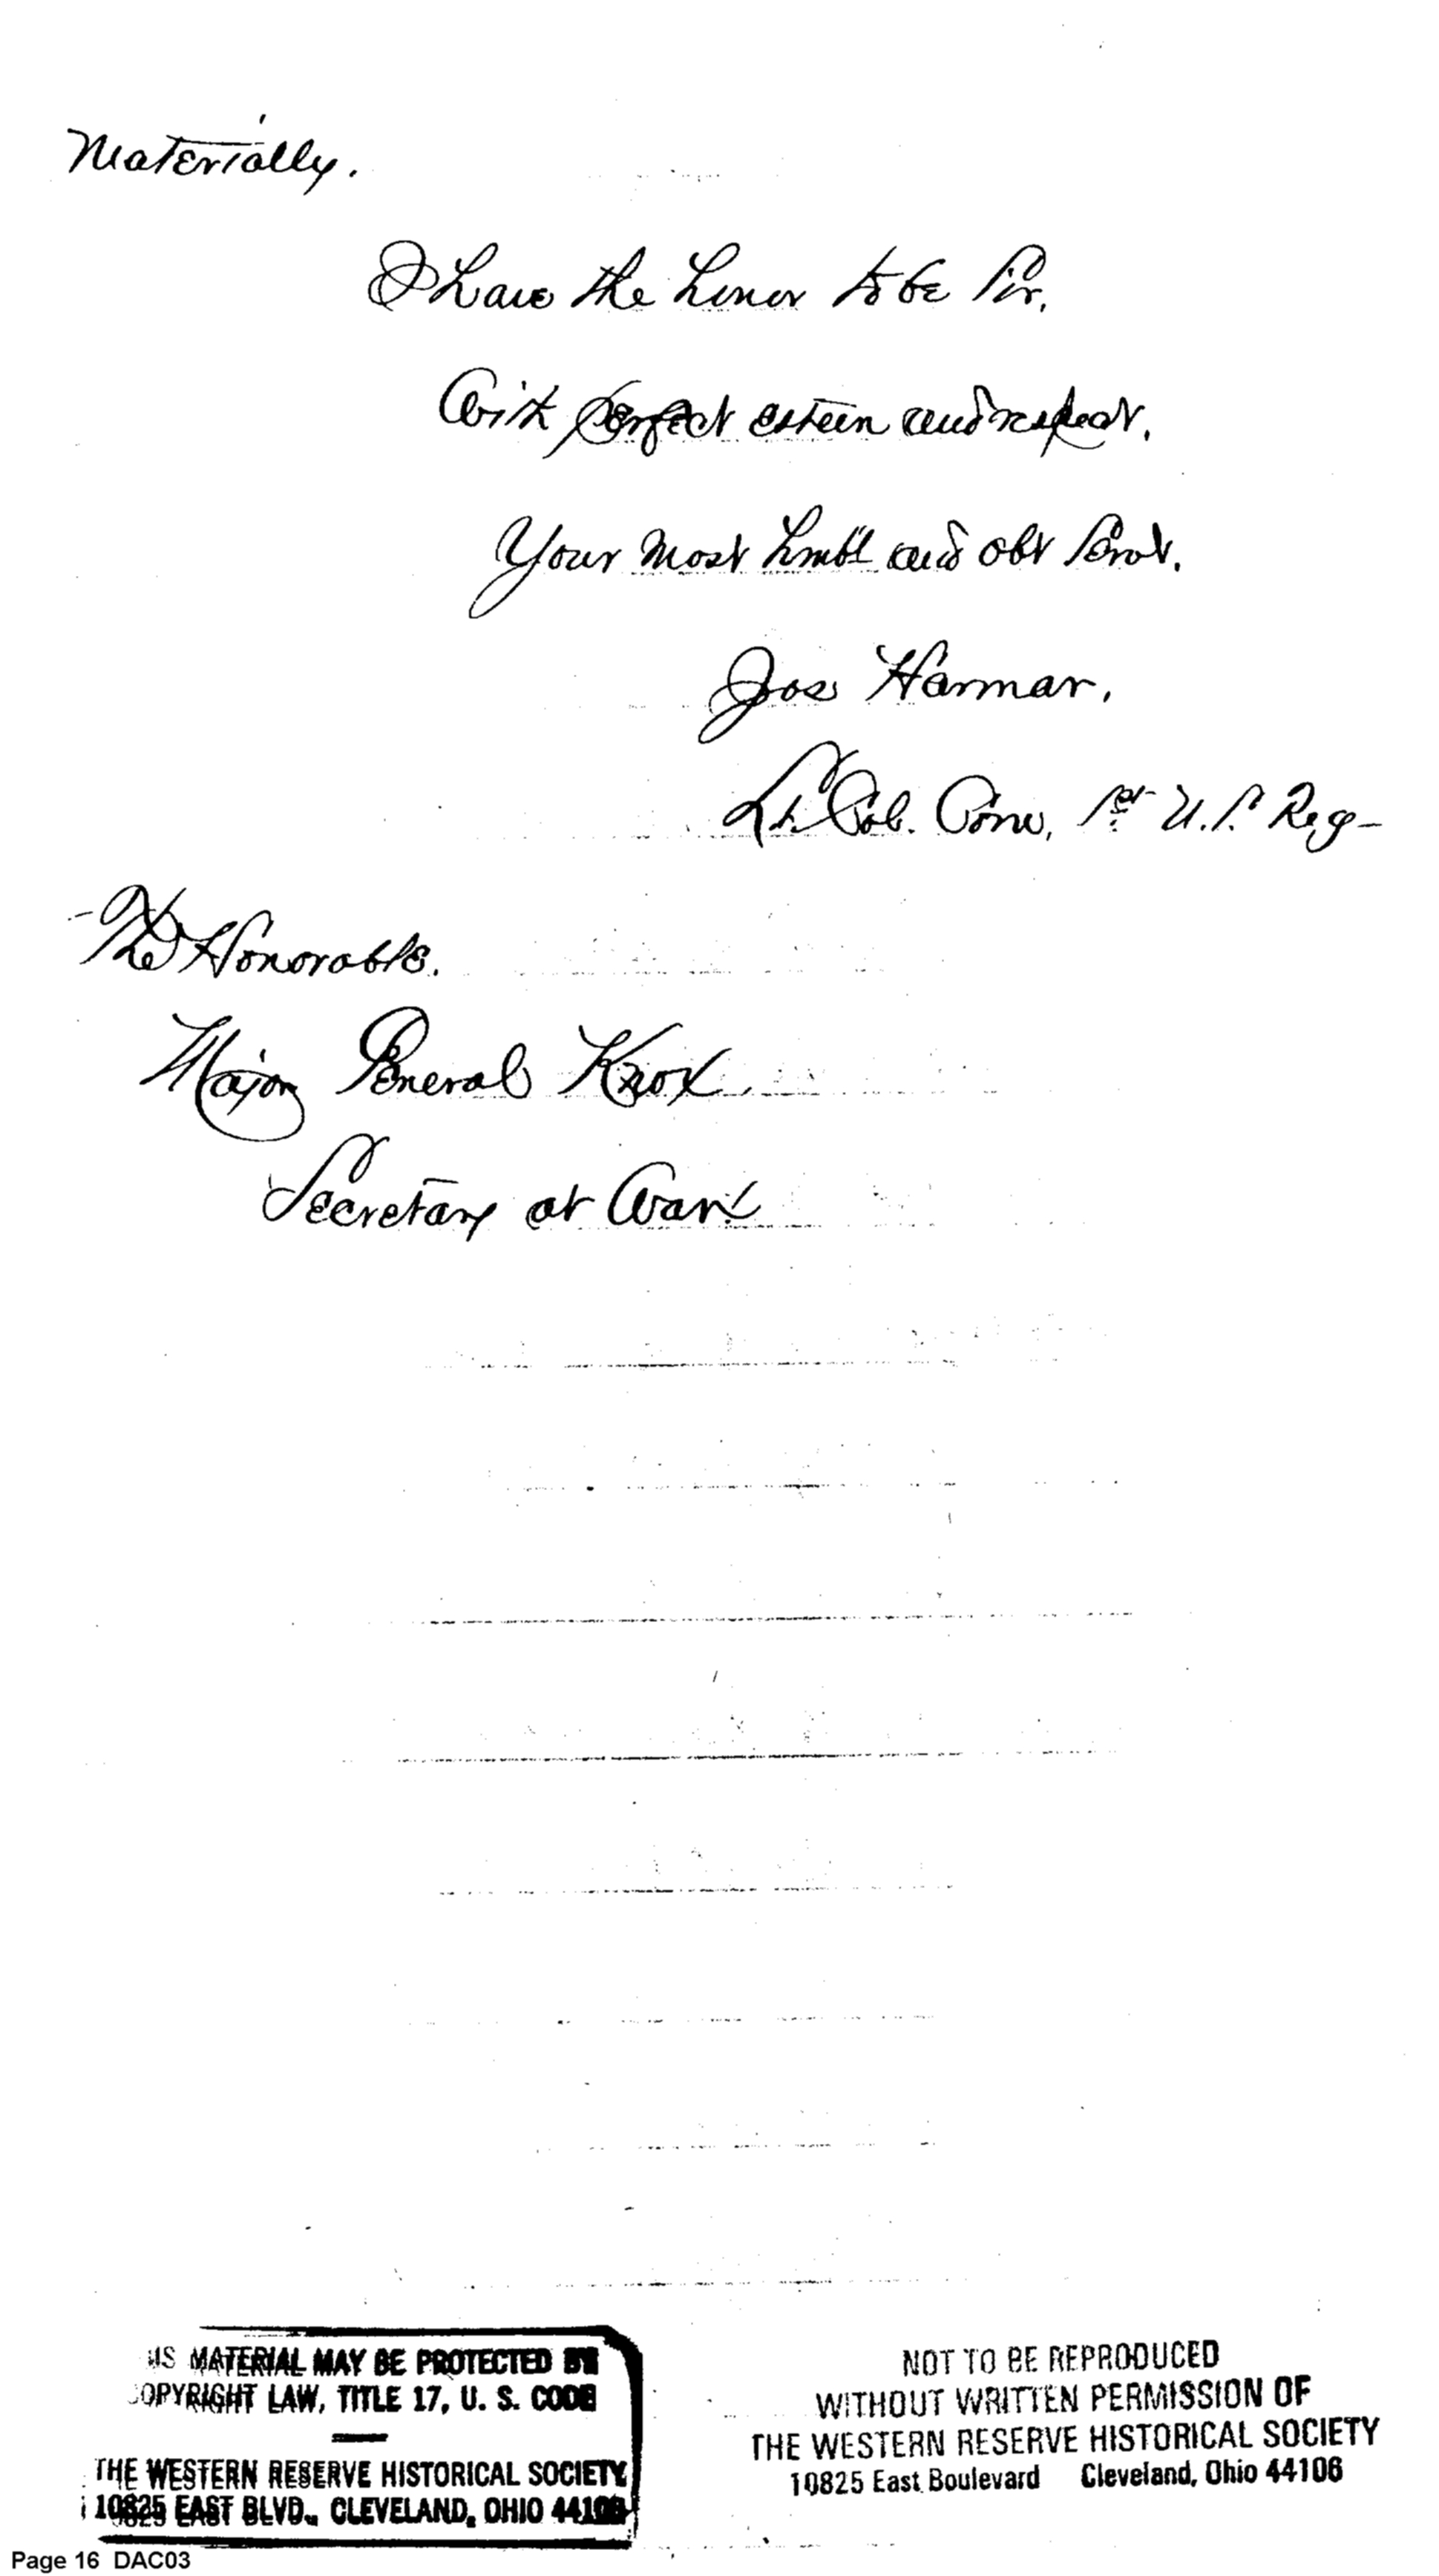 Materially.
I have the honor to be Sir,
With perfect esteem and respect,
Your most hmbl and obt Servt.
Jos Harmar,
Lt Col. Com, 1st U.S. Reg-
The Honorable.
Major General Knox
Secretary at War
IS MATERIAL MAY BE PROTECTED BY
OPYRIGHT LAW, TITLE 17, U. S. CODE
THE WESTERN RESERVE HISTORICAL SOCIETY
10825 EAST BLVD., CLEVELAND, OHIO 44106
NOT TO BE REPRODUCED
WITHOUT WRITTEN PERMISSION OF
THE WESTERN RESERVE HISTORICAL SOCIETY
10825 East Boulevard Cleveland, Ohio 44106
Page 16 DAC03